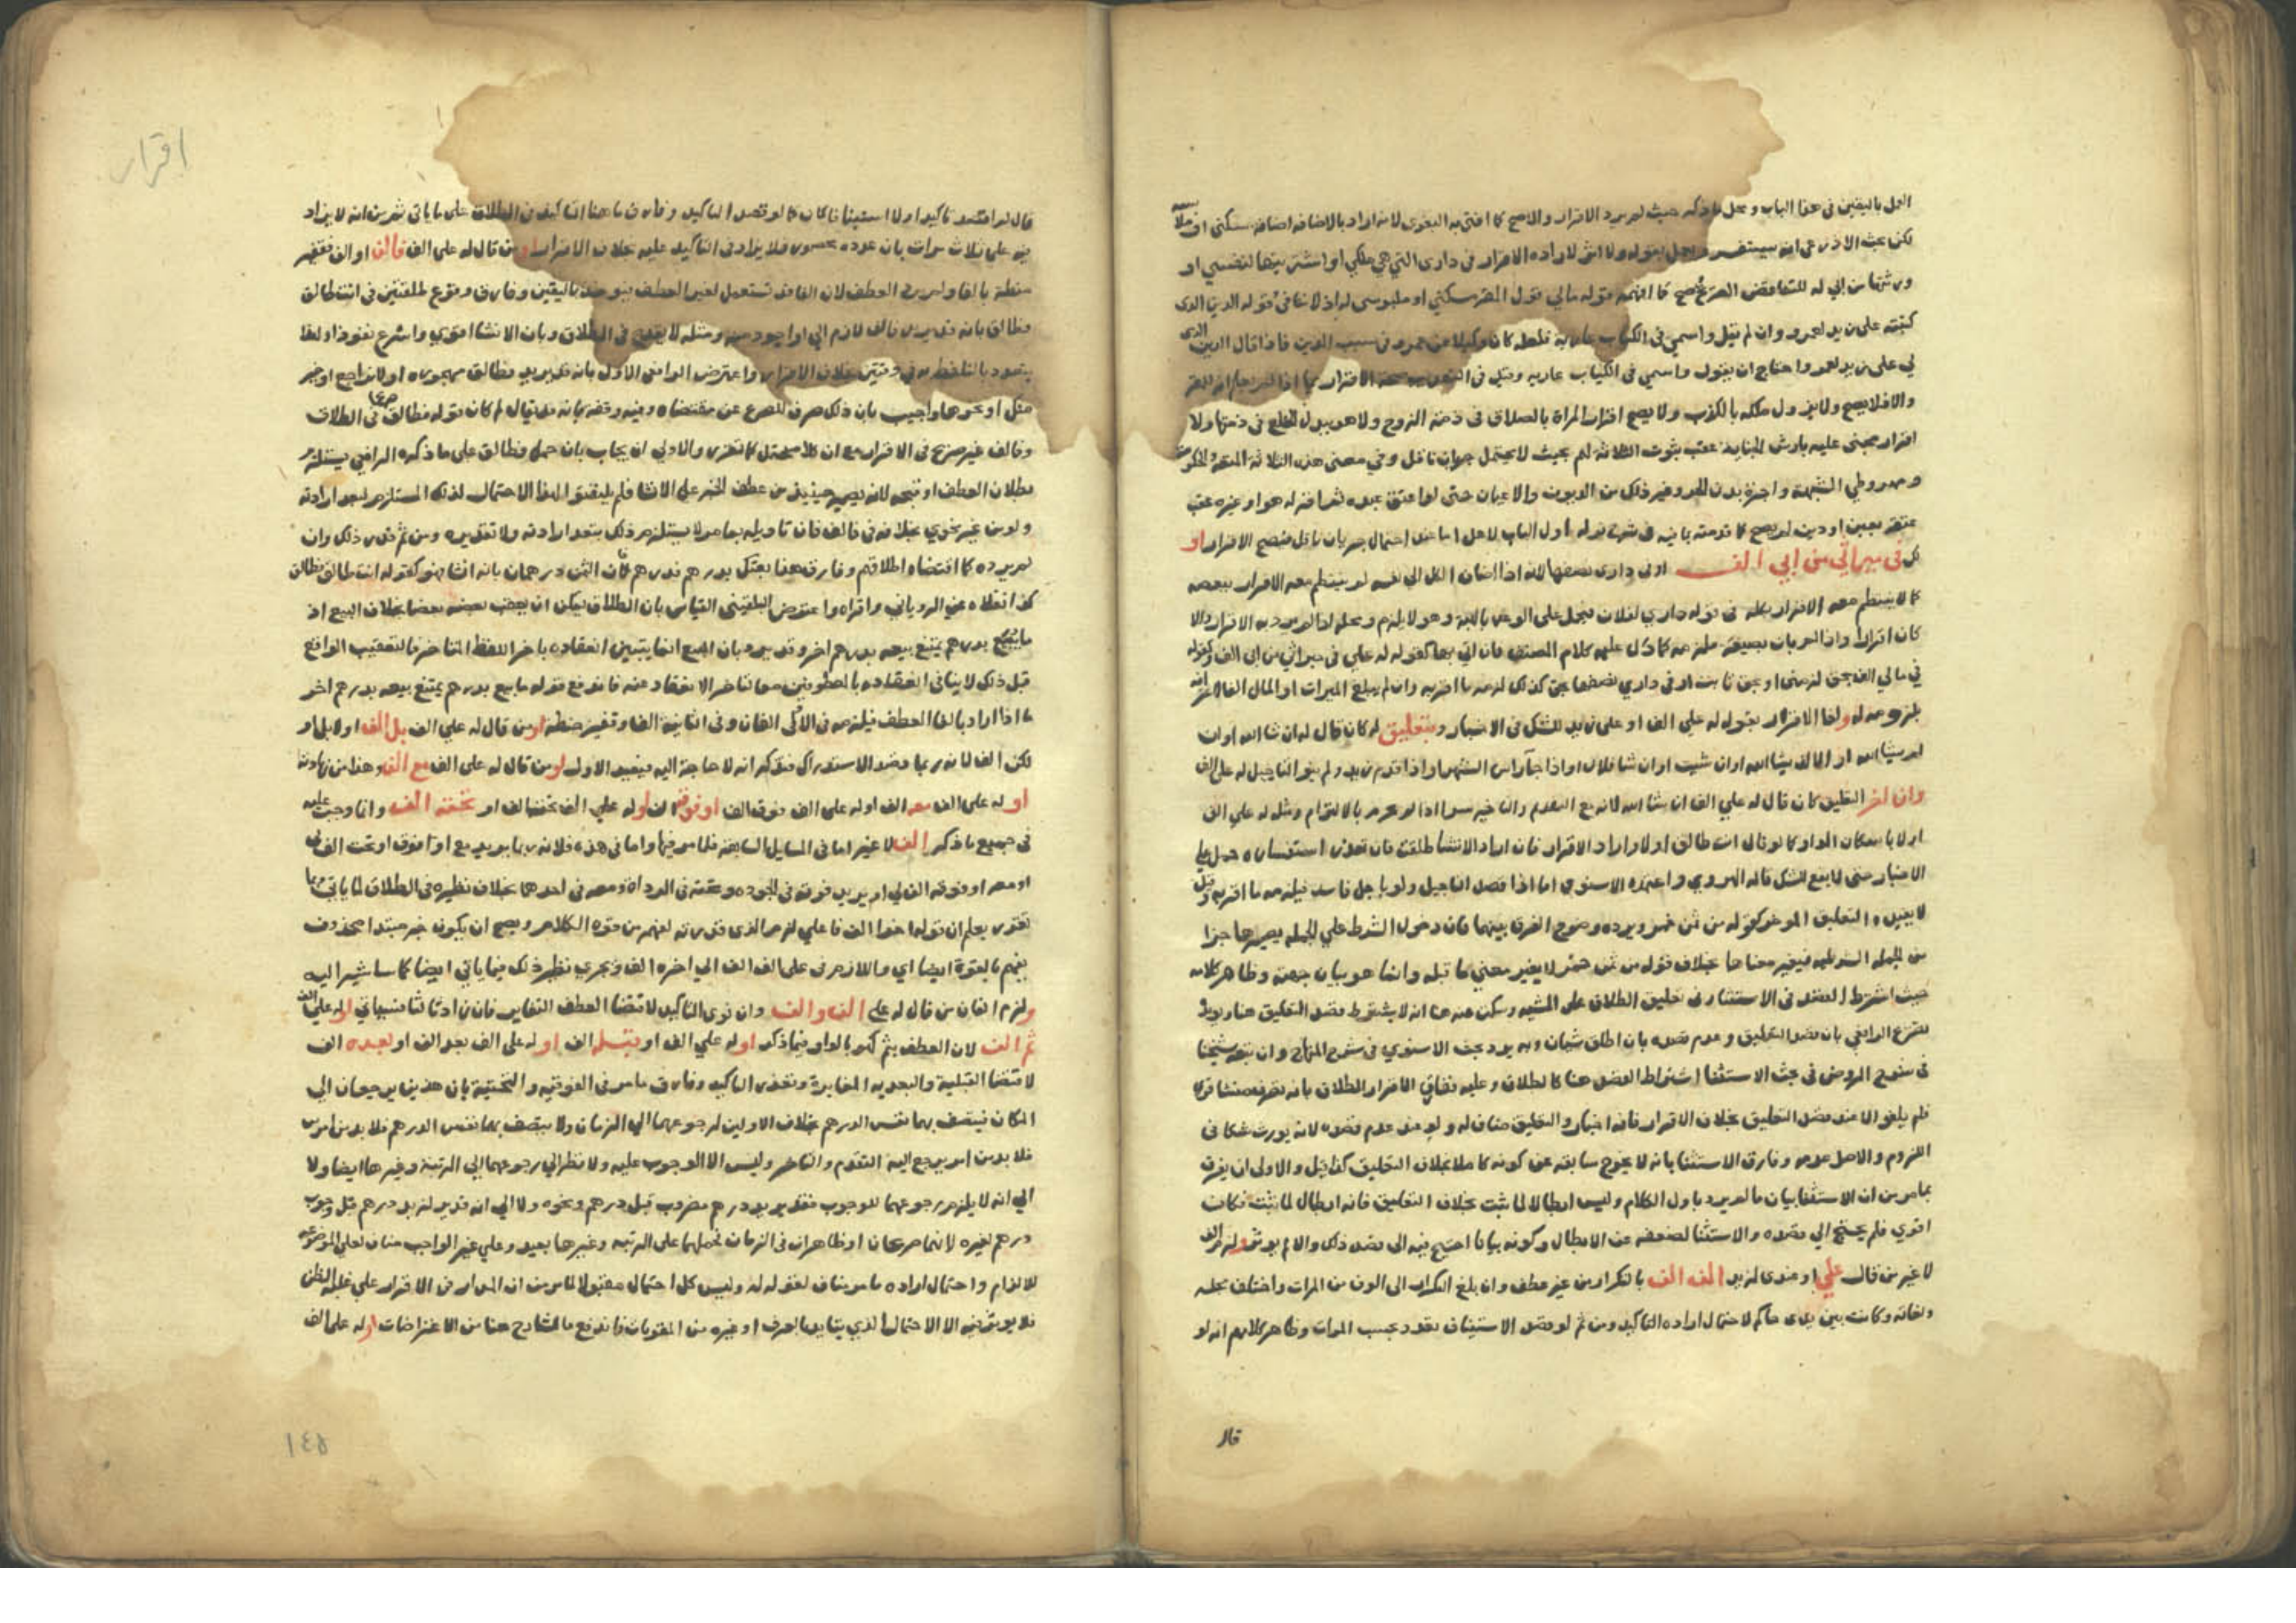 العمل باليقين في هذا الباب ومحل ما ذكره حيث لم يرد الاقرار والاصح كما افتى به البغوى لانه اراد بالاضافة اضافة سكنى
لكن بحث الاذرعي انه يستفسر ويعمل بقوله ولا اثر لارادة الاقرار في داري التي هي ملكي او اشتريتها لنفسي او
ورثتها من ابي له للتناقض الصريح كما افهمه قوله مالي قول المقر سكني او ملبوسى له اذ لا تنافي قوله الدين الذى
كتبته على زيد لعمرو وان لم يقل واسمي في الكتاب عارية فلعله كان وكيلا عن عمرو في سبب الدين فاذا قال الدين الذى
لي على زيد لعمرو احتاج ان يقول واسمي في الكتاب عارية
والا فلا يصح ولا يزول ملكه بالكذب ولا يصح اقرار المراة بالصداق في ذمة الزوج ولا هو ببدل الخلع في ذمتها ولا
اقرار مجنى عليه بارش الجناية عقب ثبوت الثلاثة لهم بحيث لا يحتمل جريان ناقل وفي معنى هذه الثلاثة المتعة والحكومة
ومهر وطي الشبهة واجرة بدن الحر وغير ذلك من الديون والاعيان حتى لو اعتق عبده ثم اقر له هو او غيره عقب
عتقه بعين او دين لم يصح كما قدمته بما فيه في شرح قوله اول الباب لاهل اما عند احتمال جريان ناقل فيصح الاقرار او
له في ميراثي من ابي الف او في داري نصفها لانه اذا اضاف الكل الى نفسه لم ينتظم معه الاقرار ببعضه
كما لا ينتظم معه الاقرار بكله في قوله داري لفلان فيحمل على الوعد بالهبة وهو لا يلزم ومحله اذا لم يرد به الاقرار والا
كان اقرارا واذا لم يات بصيغة ملزمة كما دل عليه كلام المصنف فان اتي بها كقوله له علي في ميراثي من ابي الف وكقوله
في مالي الف بحق لزمني او بحق ثابت او في داري نصفها بحق كذلك لزمه ما اقر به وان لم يبلغ الميراث او المال الفا
يلزمه له ولغا الاقرار بقوله له علي الف او على زيد للشك في الاخبار وبتعليق له كان قال له ان شا الله او ان
لم يشا الله او الا ان يشا الله او ان شيت او ان شا فلان او اذا جا راس الشهر او اذا قدم زيد ولم ينو التاجيل له على الف
وان اخر التعليق كان قال له علي الف ان شا الله لانه مع التقدم والتاخير سوا اذا لم يجزم بالالتزام ومثله له علي الف
او لا باسكان الواو كما لو قال انت طالق او لا ولو اراد الاقرار فان اراد الانشا طلقت فان تعذر استفساره حمل على
الاخبار حتى لا يقع للشك قاله الهروي واعتمده الاسنوي اما اذا قصد التاجيل ولو باجل فاسد فيلزمه ما اقر به وقيل
لا يفيده التعليق الموخر كقوله من ثمن خمر ويرده وضوح الفرق بينهما فان دخول الشرط علي الجملة يصيرها جزا
من الجملة الشرطية فيغير معناها بخلاف قوله من ثمن خمر لا يغير معني ما قبله وانما هو بيان جهته وظاهر كلامه
حيث اشترط القصد في الاستثنا وفي تعليق الطلاق على المشية وسكت عنه هنا انه لا يشترط قصد التعليق هنا
الرافعي بان قصد التعليق وعدم قصده بان اطلق سيان وبه يرد بحث الاسنوي في شرح المنهاج وان تبعه شيخنا
في شرح الروض في بحث الاستثنا اشتراط القصد هنا كالطلاق وعليه فيفارق الاقرار الطلاق بانه تصرف منشا
فلم يلغ الا عند قصد التعليق بخلاف الاقرار فانه اخبار والتعليق مناف له ولو عند عدم قصده لانه يورث شكا في
اللزوم والاصل عدمه وفارق الاستثنا بانه لا يخرج سابقه عن كونه كاملا بخلاف التعليق كذا قيل والاولى ان يفرق
بما مر من ان الاستثنا بيان ما لم يرد باول الكلام وليس ابطالا لما ثبت بخلاف التعليق فانه ابطال لما ثبت فكان
اقوي فلم يحتج الي قصده والاستثنا لضعفه عن الابطال وكونه بيانا احتيج فيه الى قصد ذلك والا لم يوثر ولزم الف
لا غير من قال علي او عندى لزيد الف الف بالتكرار من غير عطف وان بلغ التكرار الى الوف من المرات واختلف مجلسه
ولغاته وكانت بين يدى حاكم لاحتمال ارادة التاكيد ومن ثم لو قصد الاستيناف تعدد بحسب المرات وظاهر كلامهم انه لو
قال
اقرار
قال لم اقصد تاكيدا ولا استينافا كان كما لو قصد التاكيد وفارق ما هنا التاكيد في الطلاق على ما ياتي ثم من انه لا يزاد
فيه على ثلاث مرات بان عدده محصور فلا يزاد في التاكيد عليه بخلاف الاقرار او من قال له على الف فالف او الف فقفيز
حنطة بالفا ولم يرد العطف لان الفا قد تستعمل لغير العطف فيوخذ باليقين وفارق وقوع طلقتين في انت طالق
فطالق بانه قد يريد فالف لازم لي او اجود منه ومثله لا ينقدح في الطلاق وبان الانشا اقوى واسرع نفوذا ولهذا
يتعدد بالتلفظ به في وقتين بخلاف الاقرار واعترض الرافعي الاول بانه قد يريد فطالق مهجورة او لا تراجع او خير
منك او نحوها واجيب بان ذلك صرف للصريح عن مقتضاه وفيه وقفة بانه قد يقال لم كان قوله فطالق صريحا في الطلاق
وفالف غير صريح في الاقرار مع ان كلا محتمل كما تقرر والاولى ان يجاب بان حمل فطالق على ما ذكره الرافعي يستلزم
بطلان العطف او قبحه لانه يصير حينيذ من عطف الخبر على الانشا فلم يلتفتوا لهذا الاحتمال لذلك المستلزم لبعد ارادته
ولو من غير نحوي بخلافه في فالف فان تاويله بما مر لا يستلزم ذلك بتعدد ارادته ولا تقديره ومن ثم قدر ذلك وان
لم يرده كما اقتضاه اطلاقهم وفارق هذا بعتك بدرهم فدرهم فان الثمن درهمان بانه انشا فهو كقوله انت طالق فطالق
كذا نقلاه عن الروياني واقراه واعترض البلقيني القياس بان الطلاق يمكن ان يعقب بعضه بعضا بخلاف البيع اذ
ما يبيع بدرهم يمتنع بيعه بدرهم اخر وقد يرد بان البيع انما يتبين انعقاده باخر اللفظ المتاخر فالتعقيب الواقع
قبل ذلك لا ينافي انعقاده بالمعطوفين معا لتاخر الانعقاد عنه فاندفع قوله ما بيع بدرهم يمتنع بيعه بدرهم اخر
اما اذا اراد بالفا العطف فيلزمه في الاولى الفان وفي الثانية الف وقفيز حنطة او من قال له علي الف بل الف او لا بل او
لكن الف لانه ربما قصد الاستدراك فتذكر انه لا حاجة اليه فيعيد الاول او من قال له على الف مع الف وهذا من زيادته
او له على الف معه الف او له على الف فوق الف او فوقه الف او له علي الف تحت الف او تحته الف وانما وجب عليه
في جميع ما ذكر الف لا غير اما في المسايل السابقة فلما مر فيها واما في هذه فلانه ربما يريد مع او فوق او تحت الف لي
او معه او فوقه الف لي او يريد فوقه في الجودة وتحته في الرداة ومعه في احدهما بخلاف نظيره في الطلاق لما ياتي وبما
تقرر يعلم ان قولهم هنا الف فاعلي لزم الذي قدرته لفهمه من قوة الكلام ويصح ان يكون خبر مبتدا محذوف
يفهم بالقوة ايضا اي واللازم في على الف الف الي اخره الف ويجري نظير ذلك فيما ياتي ايضا كما ساشير اليه
ولزم الفان من قال له علي الف والف وان نوى التاكيد لاقتضا العطف التغاير فان زاد ثالثا فسياتي او له علي الف
ثم الف لان العطف بثم كهو بالواو فيما ذكر او له علي الف او قبله الف او له على الف بعد الف او بعده الف
لاقتضا القبلية والبعدية المغايرة وتعذر التاكيد وفارق ما مر في الفوقية والتحتية بان هذين يرجعان الى
المكان فيتصف بهما نفس الدرهم بخلاف الاولين لرجوعهما الى الزمان ولا يتصف بهما نفس الدرهم فلا بد من امر
فلا بد من امر يرجع اليه التقدم والتاخر وليس الا الوجوب عليه ولا نظر الي رجوعهما الى الرتبة وغيرها ايضا ولا
الي انه لا يلزم رجوعهما للوجوب فقد يريد درهم مضروب قبل درهم ونحوه ولا الي انه قد يريد لزيد درهم قبل وجوب
درهم لغيره لانهما صريحان او ظاهران في الزمان فحملهما على الرتبة وغيرها بعيد وعلي غير الواجب مناف لعلي الموضوعة
للالزام واحتمال ارادة ما مر مناف لقوله له وليس كل احتمال مقبولا لما مر من ان المدار في الاقرار علي غلبة الظن
فلا يوثر فيه الا الاحتمال الذي يتايد بالعرف او غيره من المقويات فاندفع ما للشارح هنا من الاعتراضات او له على الف
١٤٥